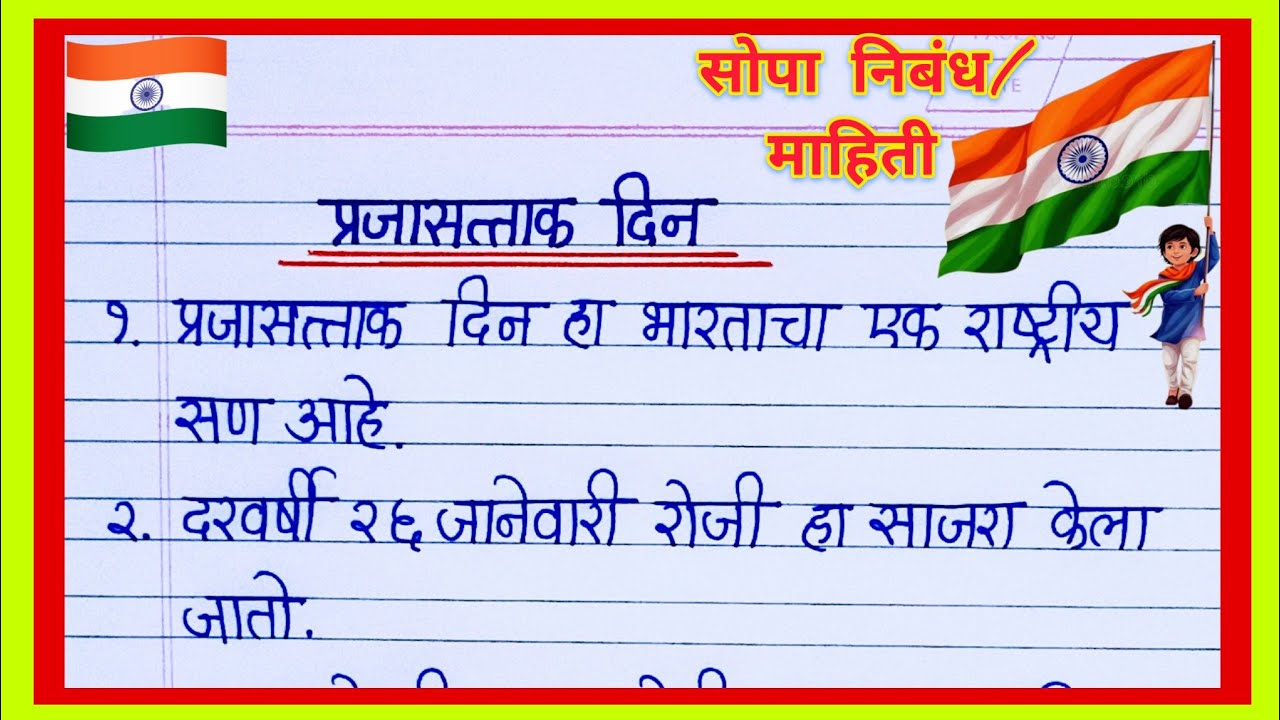 सोपा निबंध/
माहिती
प्रजासत्ताक दिन
१. प्रजासत्ताक दिन हा भारताचा एक राष्ट्रीय
सण आहे.
२. दरवर्षी २६ जानेवारी रोजी हा साजरा केला
जातो.